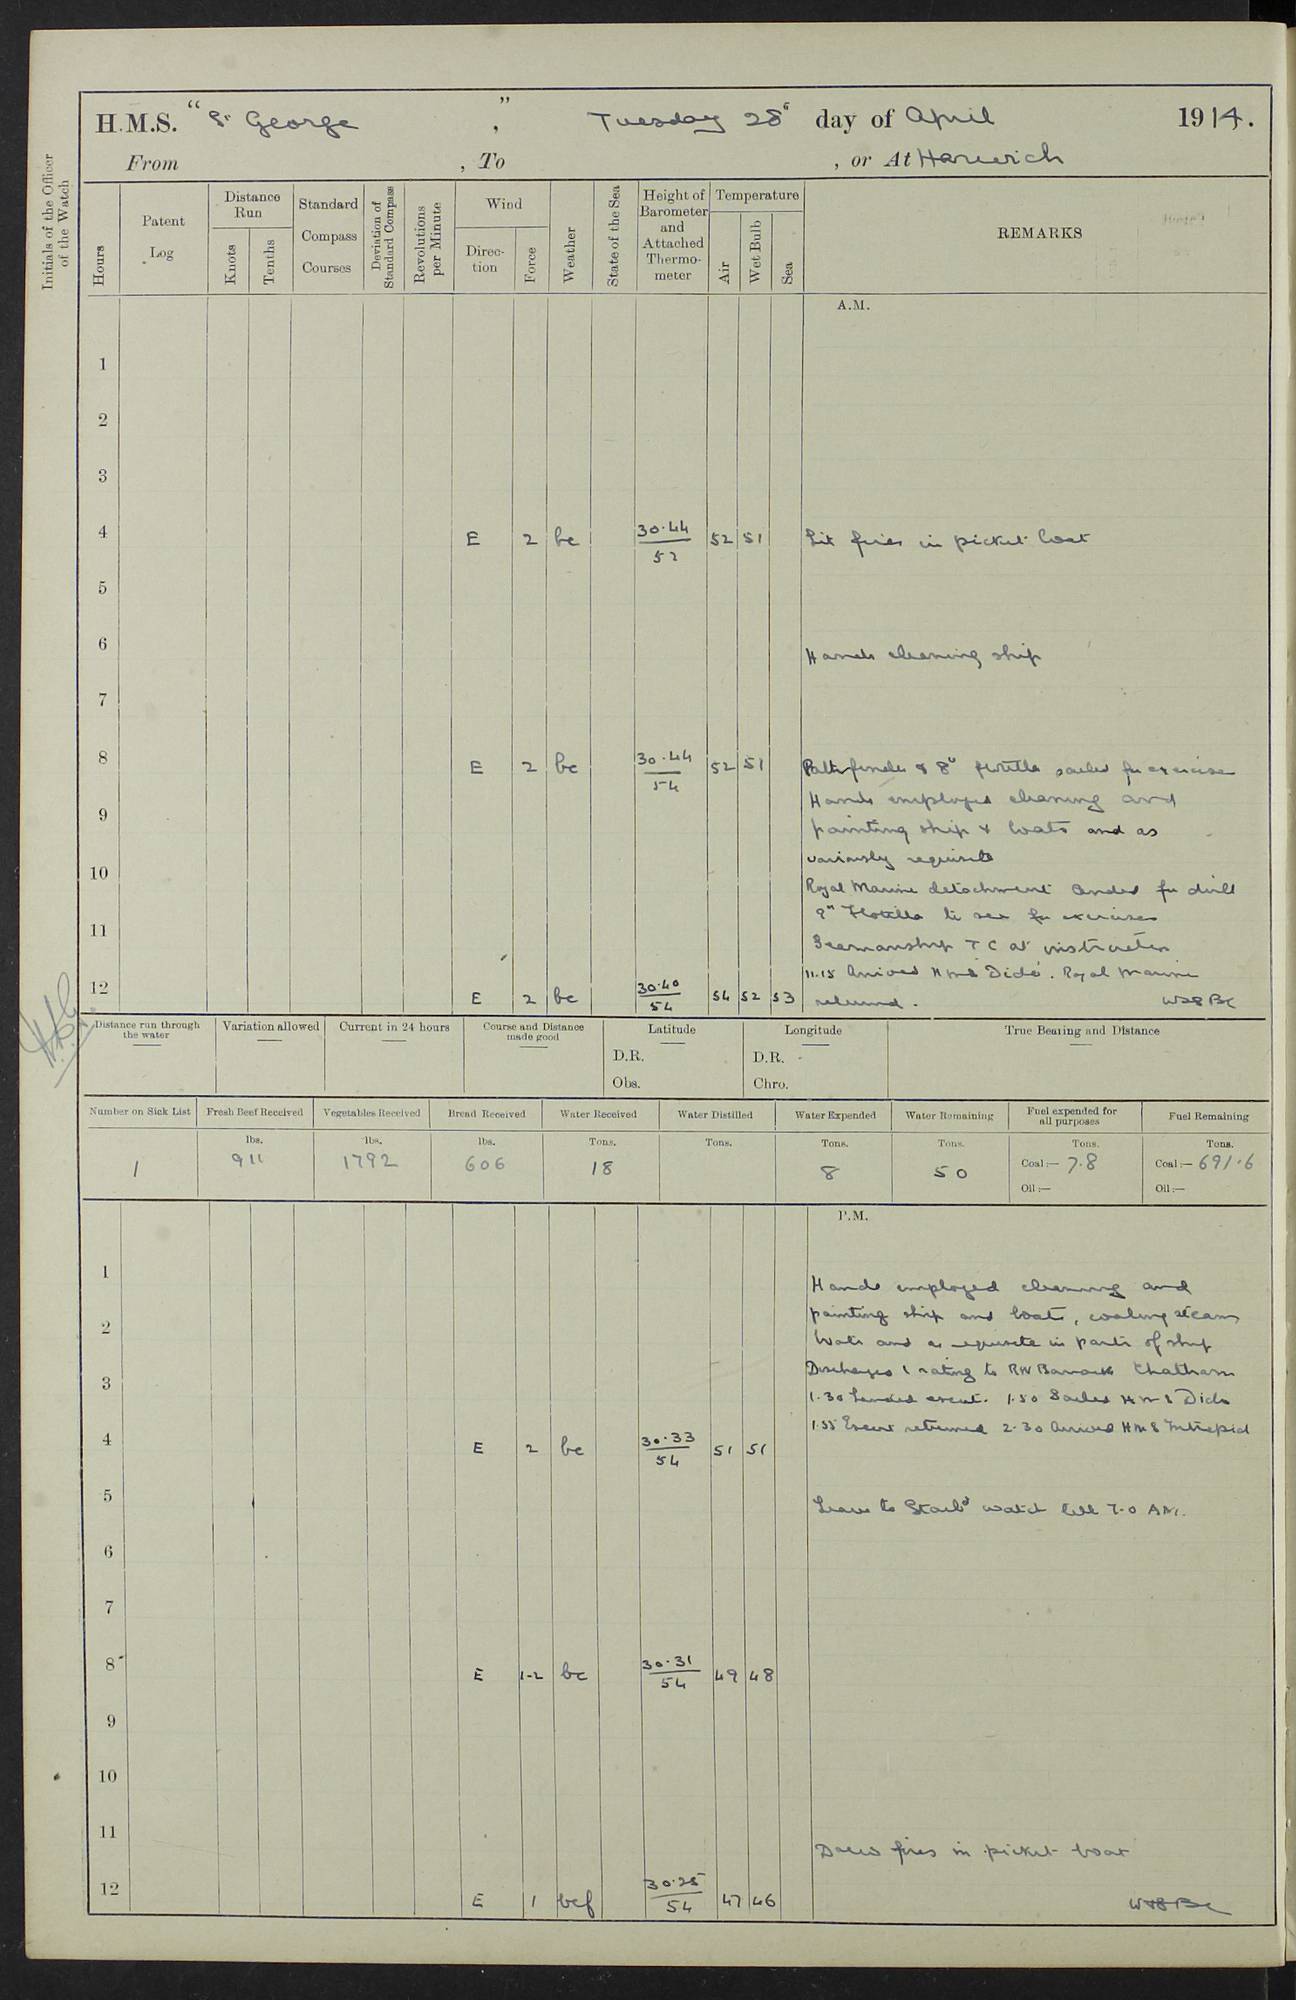 H.M.S. "St George", Tuesday 28th day of April 1914.
From , To , or At Harwich
Initials of the Officer of the Watch
Hours
Patent Log
Distance Run
Knots
Tenths
Standard Compass Courses
Deviation of Standard Compass
Revolutions per Minute
Wind
Direction
Force
Weather
State of the Sea
Height of Barometer and Attached Thermometer
Temperature
Air
Wet Bulb
Sea
REMARKS
A.M.
1
2
3
4 E 2 bc 30.44 / 52 52 51 Lit fires in picket boat
5
6 Hands cleaning ship
7
8 E 2 bc 30.44 / 54 52 51 Pathfinder & 8th flotilla sailed for exercise
Hands employed cleaning and
9 painting ship & boats and as
variously requisite
10 Royal Marine detachment landed for drill
9th Flotilla to sea for exercises
11 Seamanship T C at instruction
11.15 Arrived HMS Dido. Royal Marine
12 E 2 bc 30.40 / 54 54 52 53 returned.
Distance run through the water
Variation allowed
Current in 24 hours
Course and Distance made good
Latitude
D.R.
Obs.
Longitude
D.R.
Chro.
True Bearing and Distance
Number on Sick List
1
Fresh Beef Received
lbs.
911
Vegetables Received
lbs.
1792
Bread Received
lbs.
606
Water Received
Tons.
18
Water Distilled
Tons.
Water Expended
Tons.
8
Water Remaining
Tons.
50
Fuel expended for all purposes
Tons.
Coal:— 7.8
Oil:—
Fuel Remaining
Tons.
Coal:— 691.6
Oil:—
P.M.
1 Hands employed cleaning and
2 painting ship and boats, coaling steam
boats and as requisite in parts of ship
3 Discharged 1 rating to RN Barracks Chatham
1.30 Landed escort. 1.50 Sailed HMS Dido
4 1.55 Escort returned 2.30 Arrived HMS Intrepid
E 2 bc 30.33 / 54 51 51
5 Leave to Starbd watch till 7.0 AM.
6
7
8 E 1-2 bc 30.31 / 54 49 48
9
10
11 Drew fires in picket boat
12 E 1 bcf 30.25 / 54 47 46